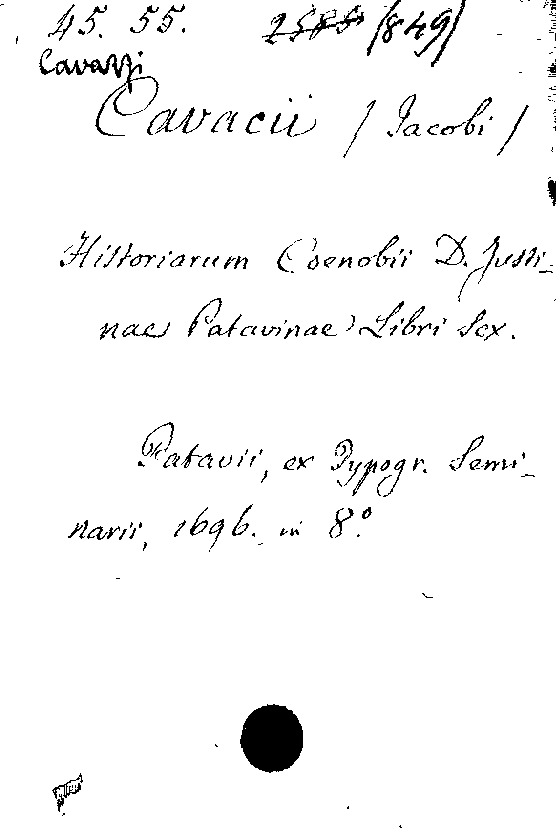 45. 55. 2585 (849)
Cavazzi
Cavacii / Jacobi /
Historiarum Coenobii D. Justi-
nae Patavinae Libri Sex.
Patavii, ex Typogr. Semi-
narii, 1696. in 8.°